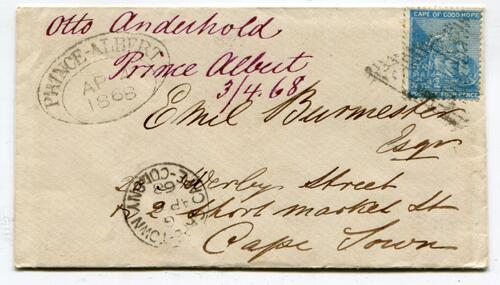 Otto Anderhold
Prince Albert
3/4.68
PRINCE-ALBERT
AP
1868
CAPE OF GOOD HOPE
POSTAGE FOUR PENCE
Emil Burmester
Esqr
Street
2 Short market St
Cape Town
CAPE-COLONY
AP 6
68